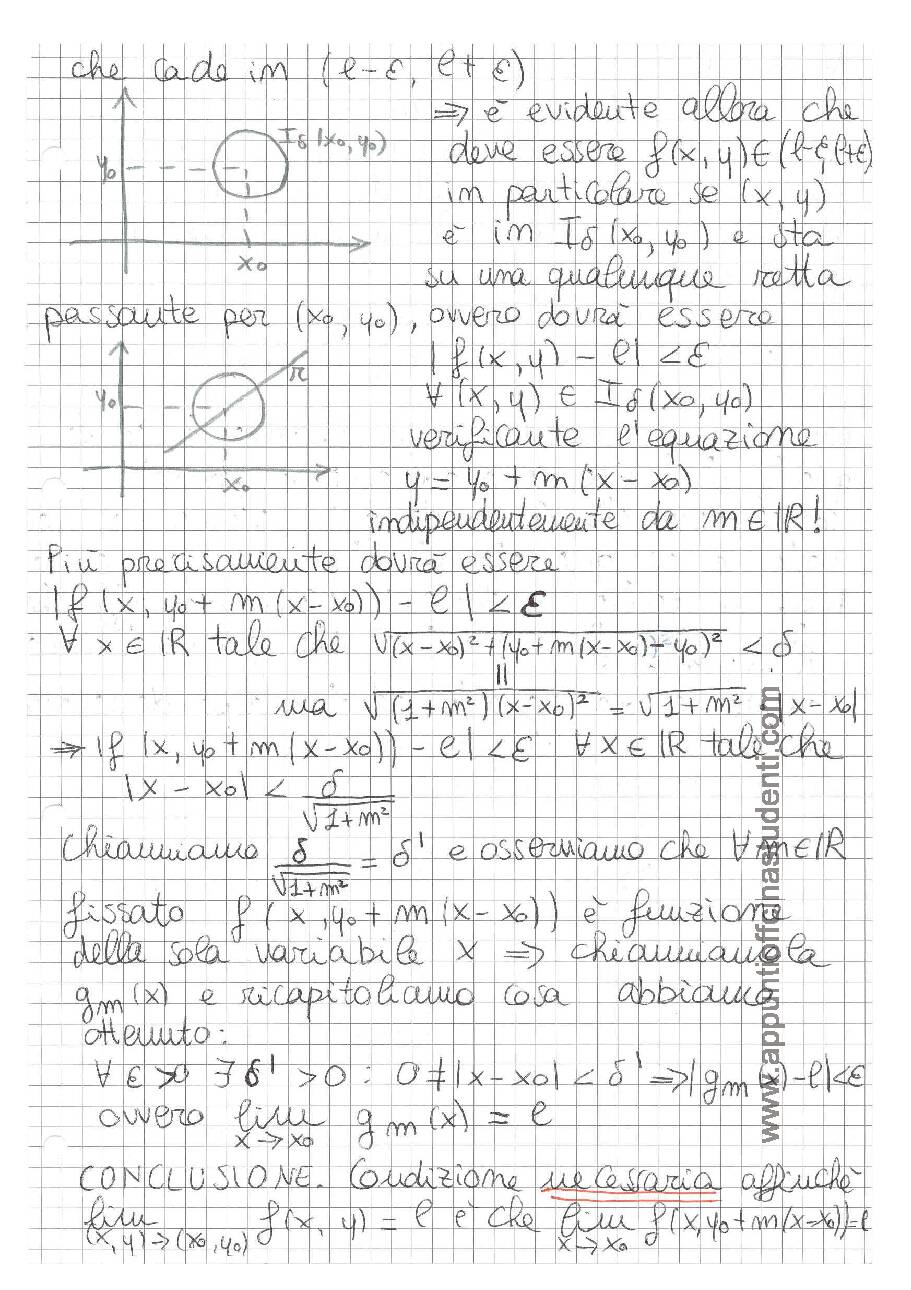 che cade in (l-ε, l+ε)
Iδ(x0, y0)
y0
x0
=> è evidente allora che
deve essere f(x,y)∈(l-ε, l+ε)
in particolare se (x, y)
è in Iδ(x0, y0) e sta
su una qualunque retta
passante per (x0, y0), ovvero dovrà essere
r
y0
x0
|f(x,y) - l| < ε
∀ (x,y) ∈ Iδ(x0, y0)
verificante l'equazione
y = y0 + m(x - x0)
indipendentemente da m∈ℝ!
Più precisamente dovrà essere:
|f(x, y0 + m(x-x0)) - l| < ε
∀ x∈ℝ tale che √((x-x0)² + (y0+m(x-x0)-y0)²) < δ
||
ma √((1+m²)(x-x0)²) = √(1+m²) · |x-x0|
=> |f(x, y0+m(x-x0)) - l| < ε ∀x∈ℝ tale che
|x - x0| < δ/√(1+m²)
Chiamiamo δ/√(1+m²) = δ' e osserviamo che ∀m∈ℝ
fissato f(x, y0+m(x-x0)) è funzione
della sola variabile x => chiamiamola
gm(x) e ricapitoliamo cosa abbiamo
ottenuto:
∀ε>0 ∃δ'>0 : 0≠|x-x0|<δ' => |gm(x)-l|<ε
ovvero lim x→x0 gm(x) = l
CONCLUSIONE. Condizione necessaria affinché
lim (x,y)→(x0,y0) f(x, y) = l è che lim x→x0 f(x,y0+m(x-x0))=l
www.appuntiofficinastudenti.com